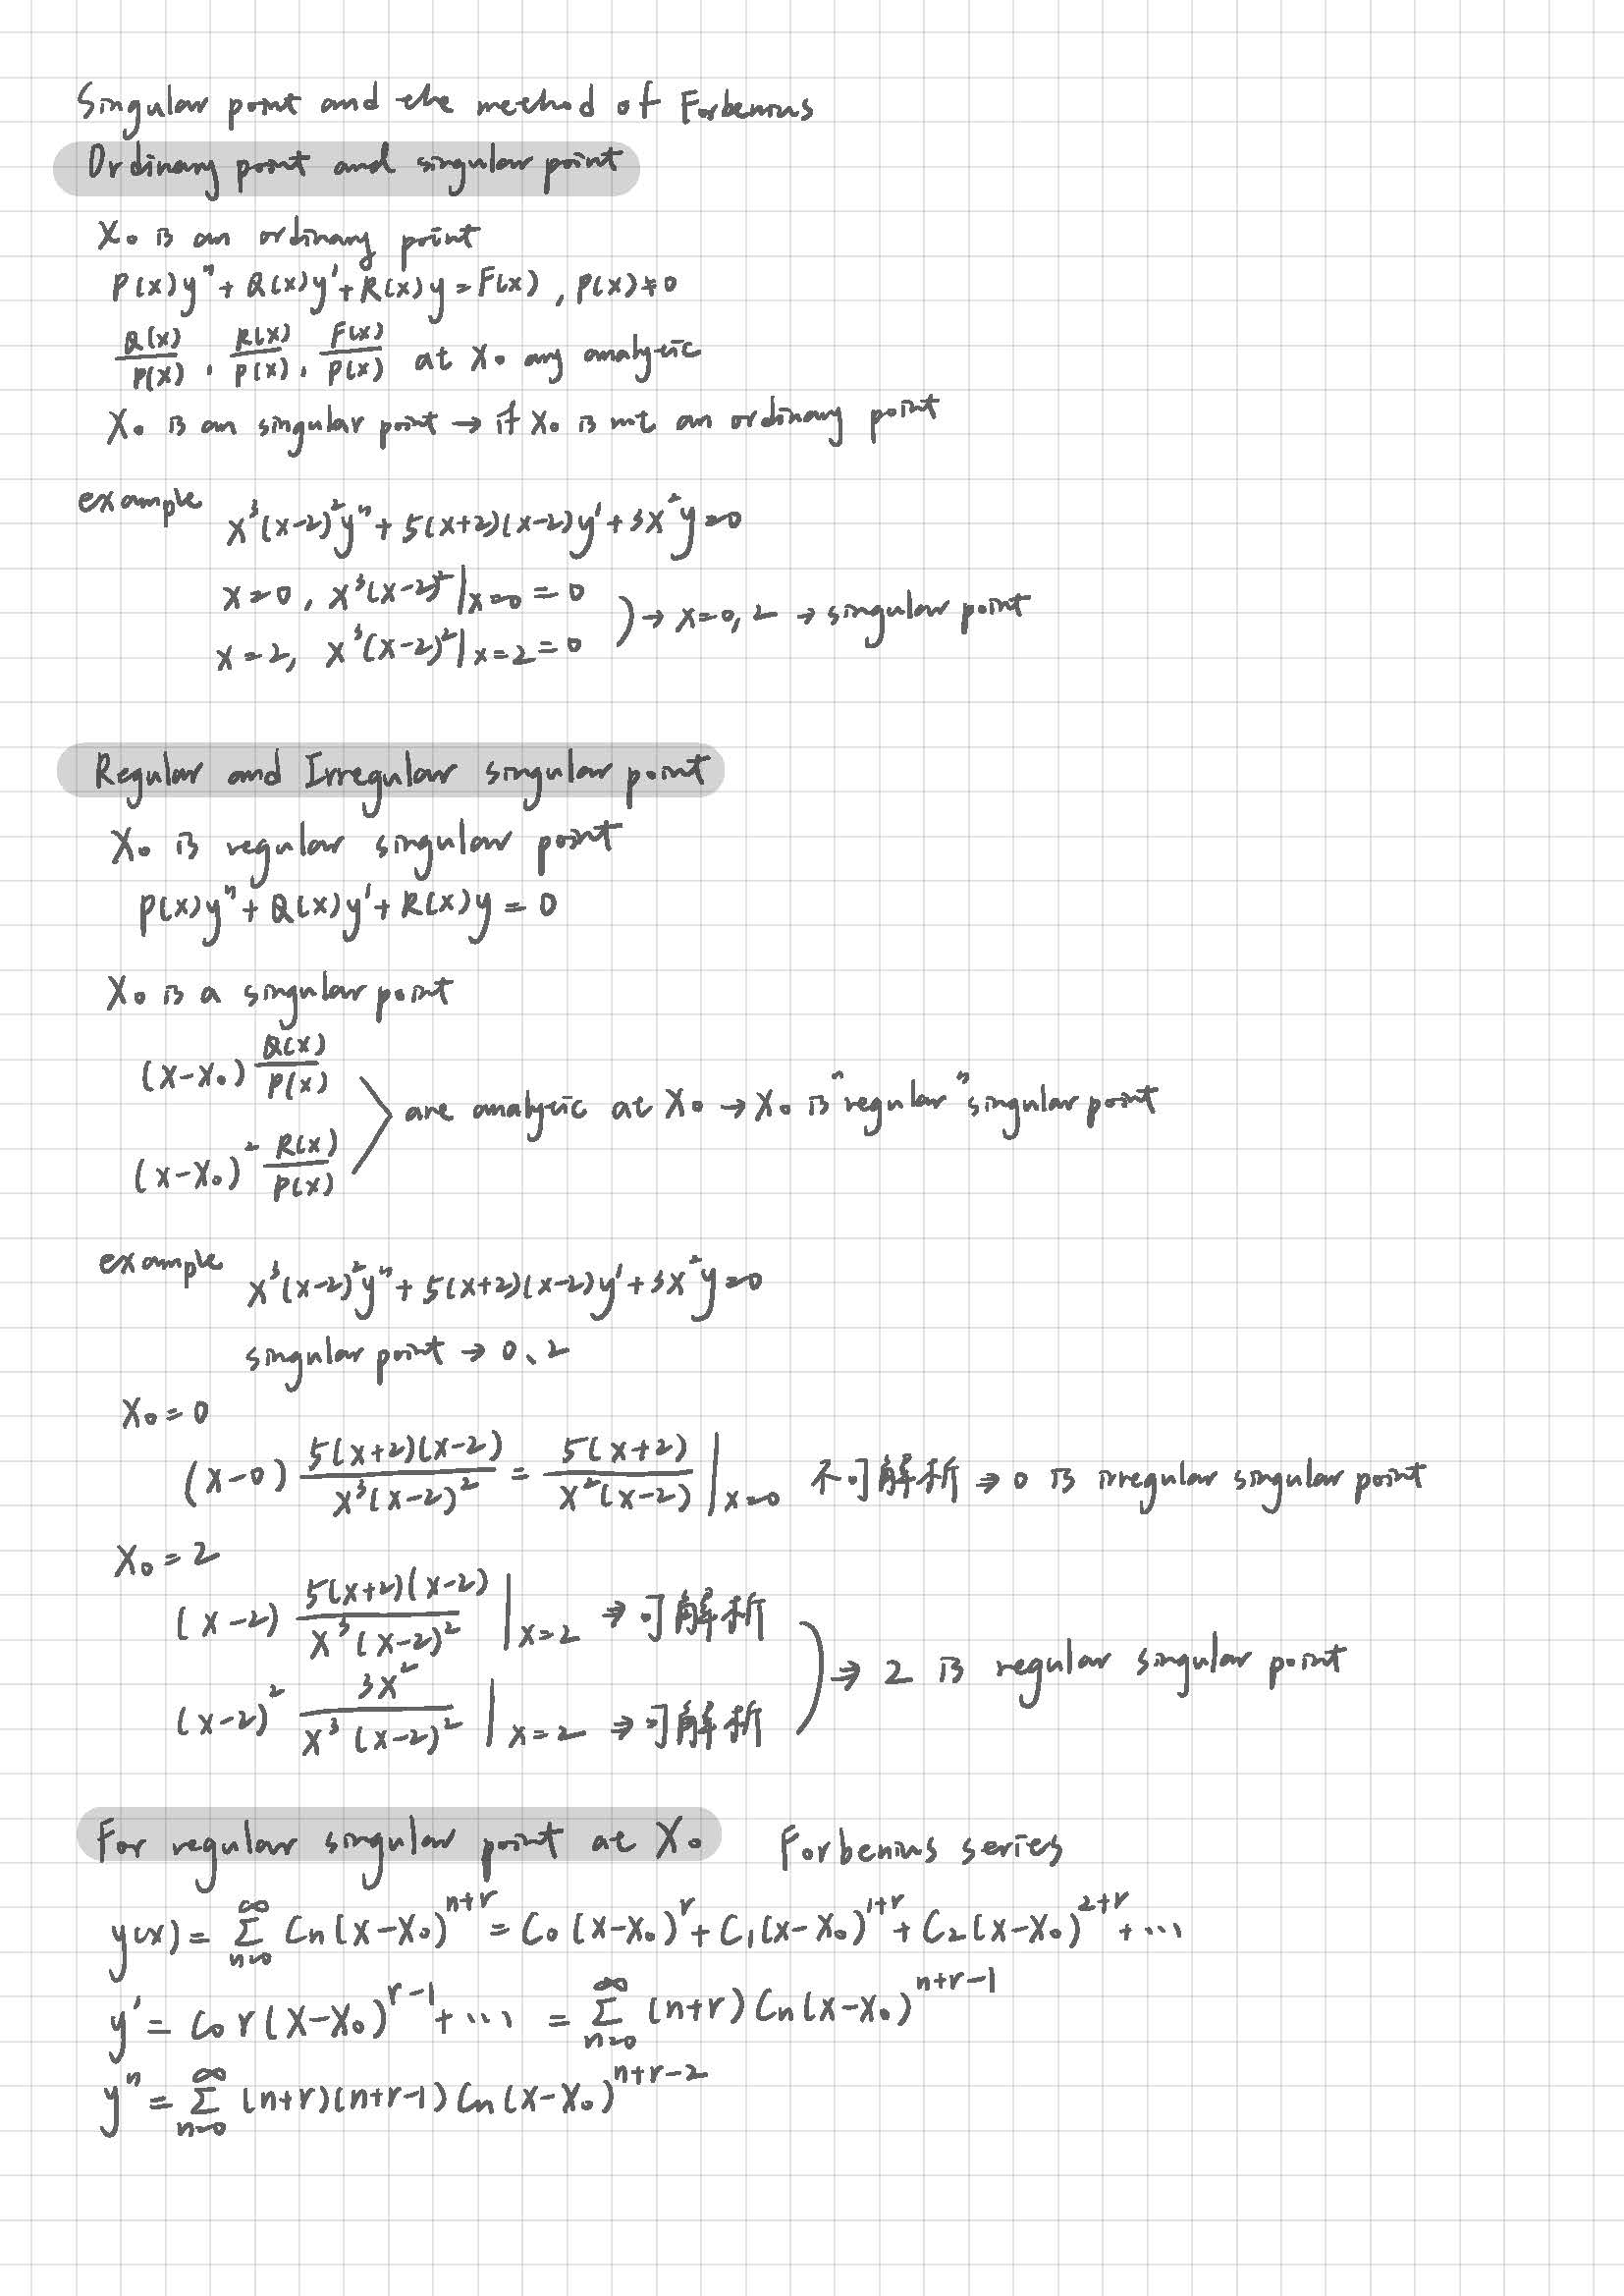 Singular point and the method of Forbenius
Ordinary point and singular point
X₀ is an ordinary point
P(x)y"+Q(x)y'+R(x)y=F(x), P(x)≠0
Q(x)/P(x), R(x)/P(x), F(x)/P(x) at X₀ any analytic
X₀ is an singular point → if X₀ is not an ordinary point
example
x³(x-2)²y"+5(x+2)(x-2)y'+3x²y=0
x=0, x³(x-2)²|x=0=0
x=2, x³(x-2)²|x=2=0
) → x=0,2 → singular point
Regular and Irregular singular point
X₀ is regular singular point
P(x)y"+Q(x)y'+R(x)y=0
X₀ is a singular point
(x-x₀) Q(x)/P(x)
(x-x₀)² R(x)/P(x)
> are analytic at X₀ → X₀ is "regular" singular point
example
x³(x-2)²y"+5(x+2)(x-2)y'+3x²y=0
singular point → 0、2
X₀=0
(x-0) 5(x+2)(x-2)/x³(x-2)² = 5(x+2)/x²(x-2) |x=0 不可解析 → 0 is irregular singular point
X₀=2
(x-2) 5(x+2)(x-2)/x³(x-2)² |x=2 → 可解析
(x-2)² 3x²/x³(x-2)² |x=2 → 可解析
) → 2 is regular singular point
For regular singular point at X₀ Forbenius series
y(x)=∑_{n=0}^{∞} Cn(x-x₀)^{n+r}=C₀(x-x₀)^{r}+C₁(x-x₀)^{1+r}+C₂(x-x₀)^{2+r}+...
y'=C₀r(x-x₀)^{r-1}+...=∑_{n=0}^{∞}(n+r)Cn(x-x₀)^{n+r-1}
y"=∑_{n=0}^{∞}(n+r)(n+r-1)Cn(x-x₀)^{n+r-2}